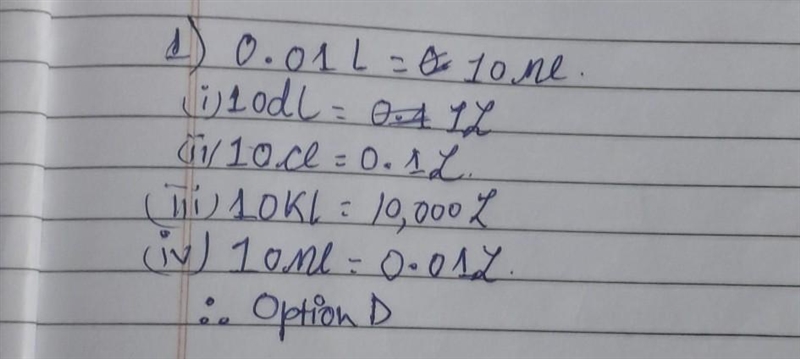 1) 0.01 L = 10 ml.
(i) 10dl = 1L
(ii) 10 cl = 0.1L.
(iii) 10Kl = 10,000 L
(iv) 10ml = 0.01L.
∴ Option D